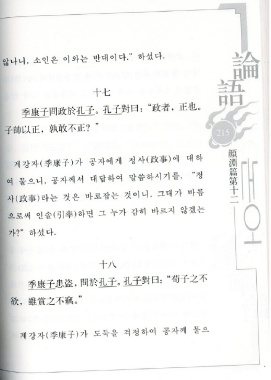 않나니, 소인은 이와는 반대이다.” 하셨다.
十七
季康子問政於孔子. 孔子對曰: “政者, 正也.
子帥以正, 孰敢不正?”
계강자(季康子)가 공자에게 정사(政事)에 대하
여 물으니, 공자께서 대답하여 말씀하시기를, “정
사(政事)라는 것은 바로잡는 것이니, 그대가 바름
으로써 인솔(引率)하면 그 누가 감히 바르지 않겠는
가?” 하셨다.
十八
季康子患盜, 問於孔子. 孔子對曰: “苟子之不
欲, 雖賞之不竊.”
계강자(季康子)가 도둑을 걱정하여 공자께 물으
論語
215
顔淵篇第十二
논어